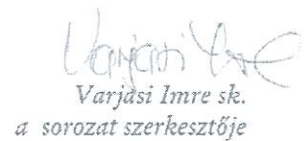 Varjasi Imre
Varjasi Imre sk.
a sorozat szerkesztője